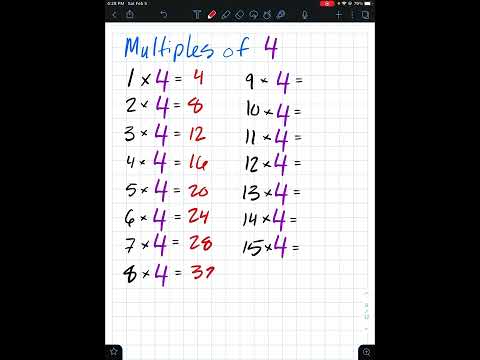 4:28 PM Sat Feb 5
79%
Multiples of 4
1 × 4 = 4
2 × 4 = 8
3 × 4 = 12
4 × 4 = 16
5 × 4 = 20
6 × 4 = 24
7 × 4 = 28
8 × 4 = 32
9 × 4 =
10 × 4 =
11 × 4 =
12 × 4 =
13 × 4 =
14 × 4 =
15 × 4 =